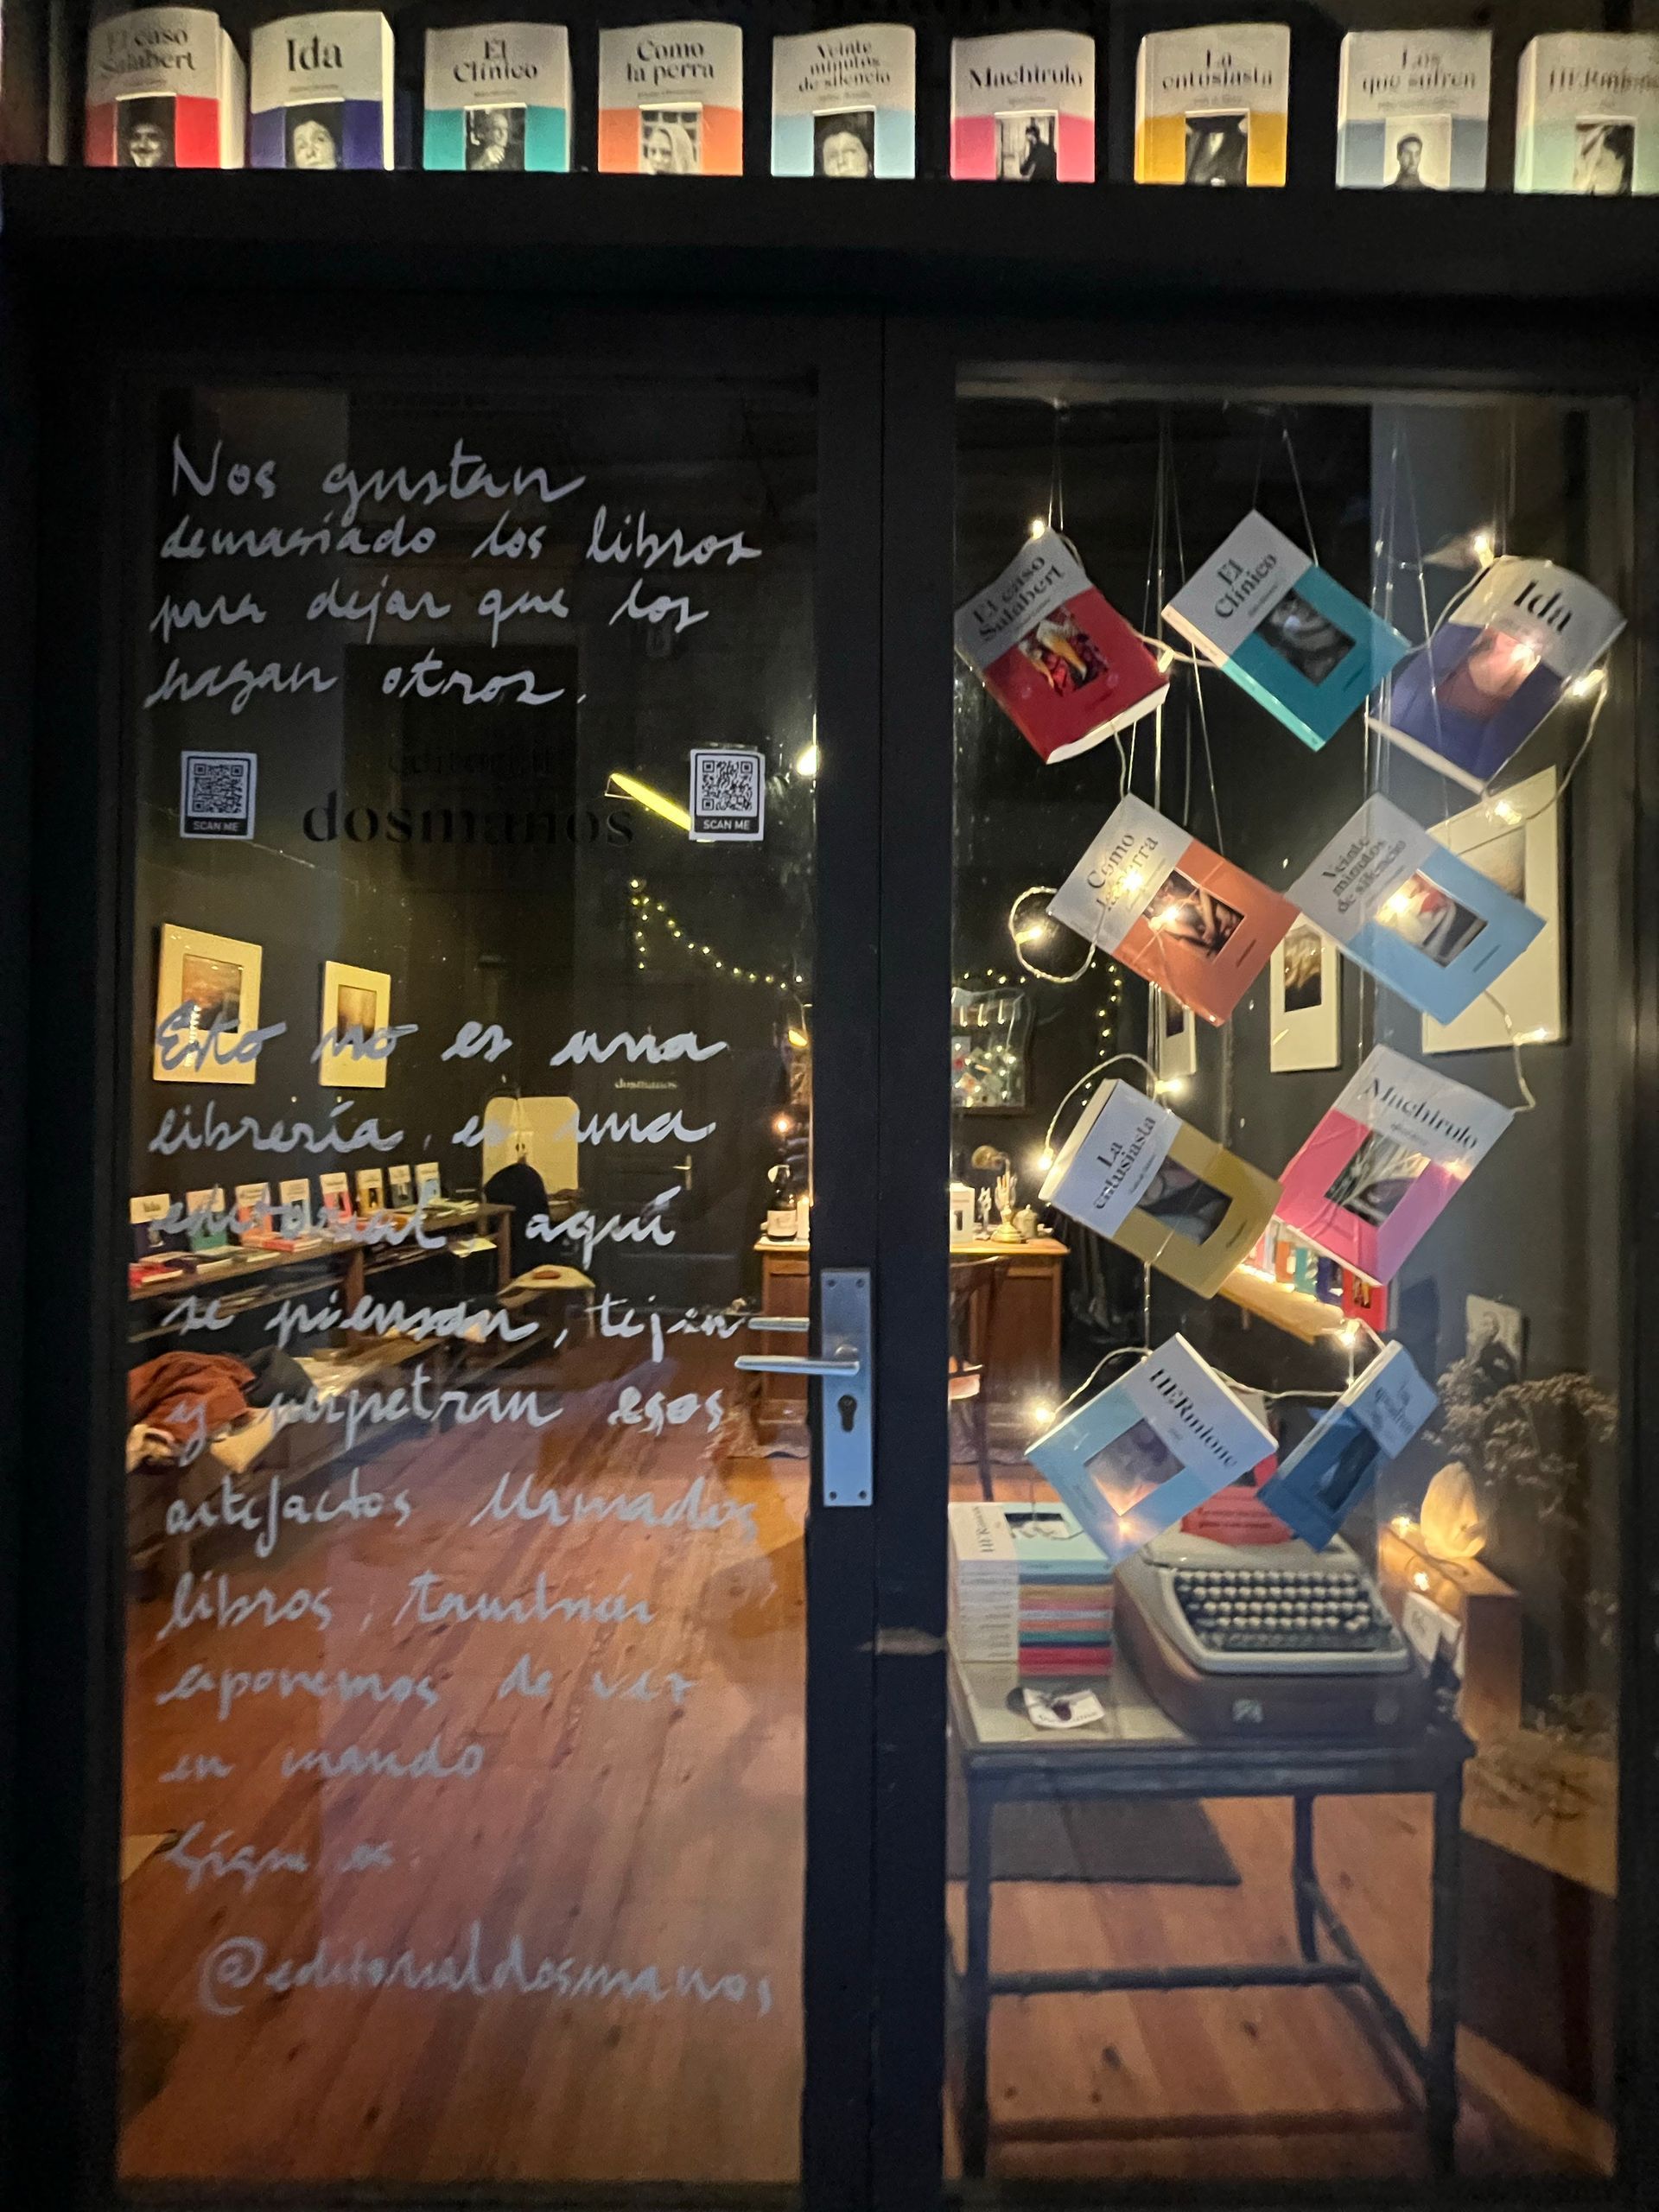 El caso
Salabert
Ida
El
Clínico
Como
la perra
Veinte
minutos
de silencio
Machirulo
La
entusiasta
Los
que sufren
HERmione
Nos gustan
demasiado los libros
para dejar que los
hagan otros.
SCAN ME
dosmanos
SCAN ME
Esto no es una
librería, es una
editorial, aquí
se piensan, tejen
y perpetran esos
artefactos llamados
libros, también
exponemos de vez
en mando
Sigue os
@editorialdosmanos
dosmanos
El caso
Salabert
El
Clínico
Ida
Como
la perra
Veinte
minutos
de silencio
La
entusiasta
Machirulo
HERmione